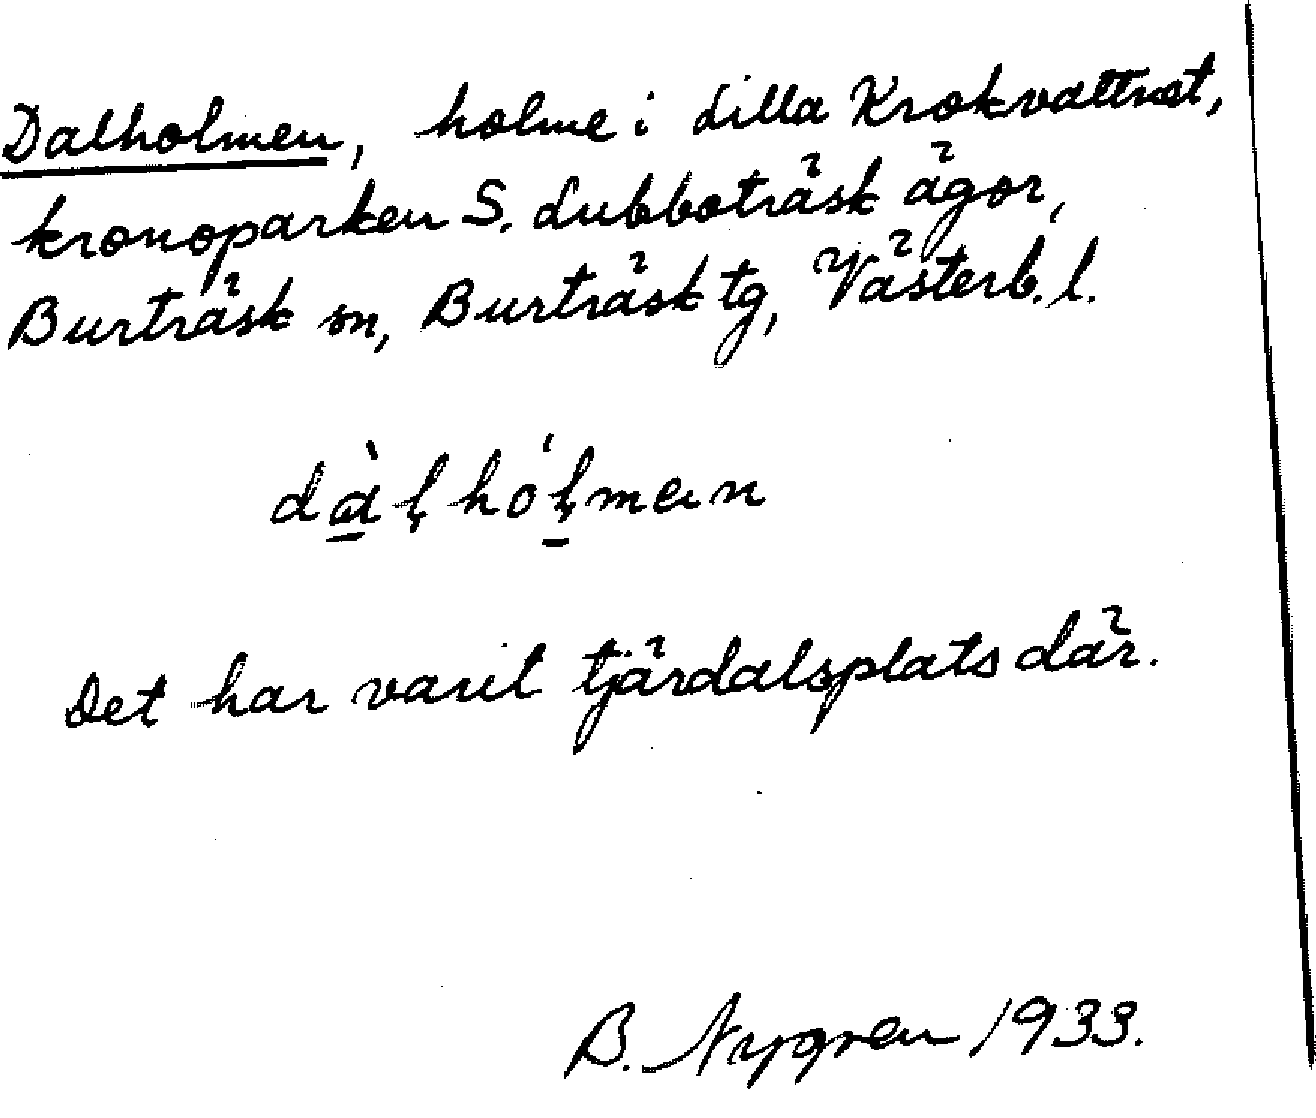 Dalholmen, holme i Lilla Krokvattnet,
kronoparken S. Lubboträsk ägor,
Burträsk sn, Burträsk tg, Västerb. l.
dàļhóļmen
Det har varit tjärdalsplats där.
B. Nygren 1933.